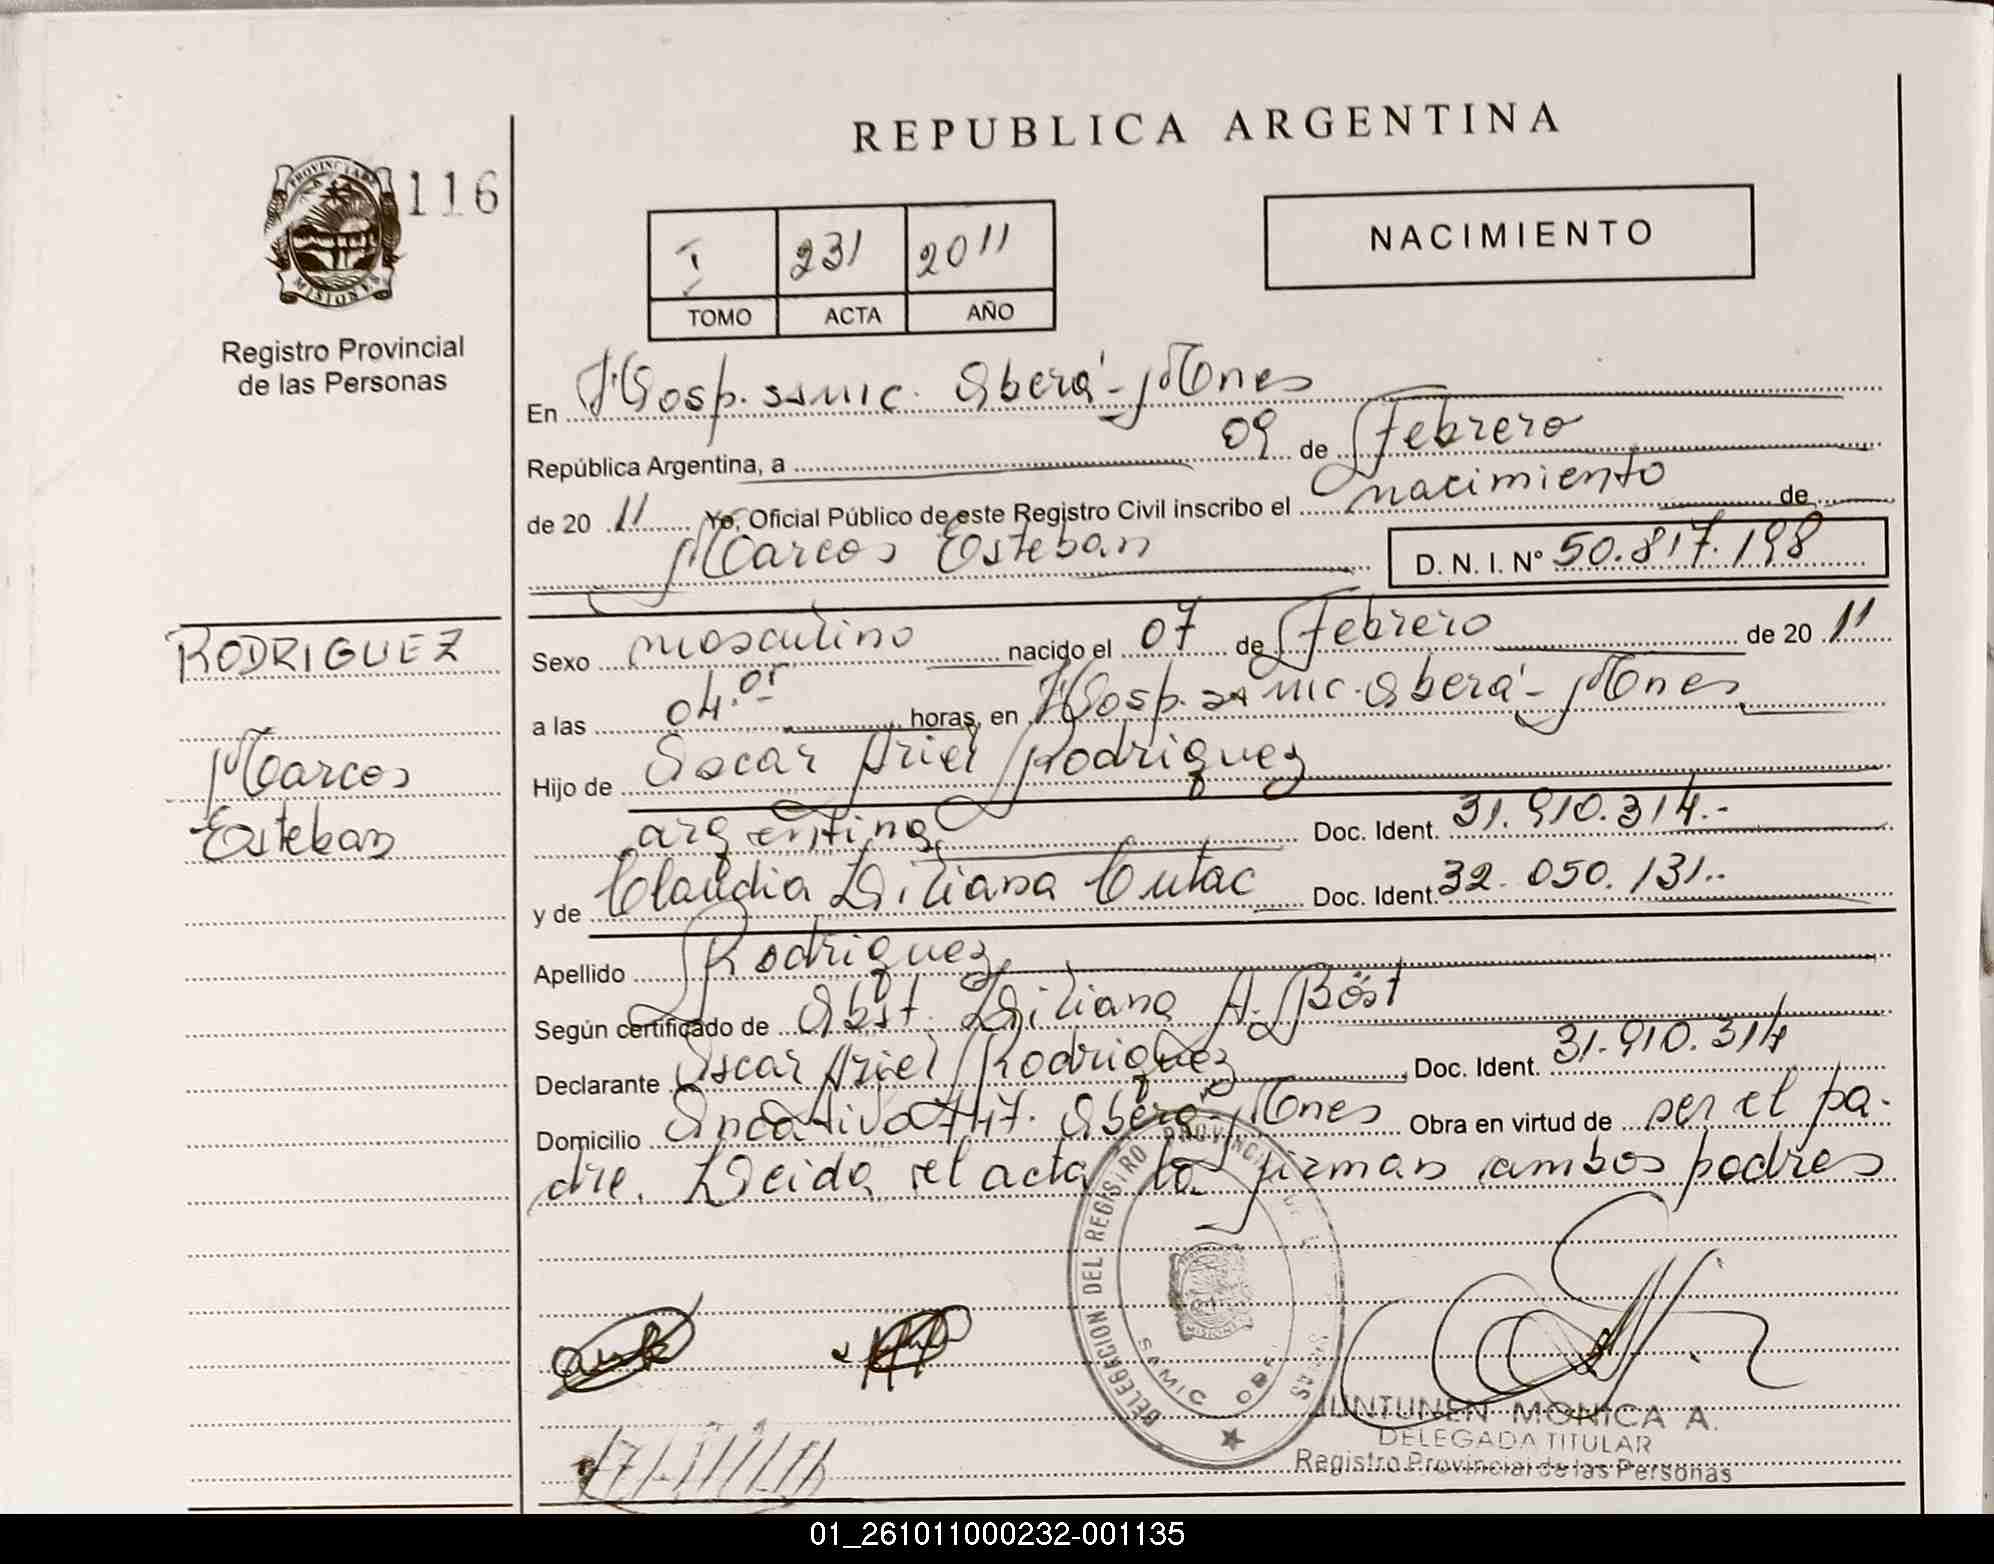 REPUBLICA ARGENTINA
PROVINCIA DE
MISIONES
116
Registro Provincial
de las Personas
I 231 2011
TOMO ACTA AÑO
NACIMIENTO
En Hosp. SAMIC. Oberá - Mnes
República Argentina, a 09 de Febrero
de 20 11 Yo, Oficial Público de este Registro Civil inscribo el nacimiento de
Marcos Esteban D. N. I. Nº 50.817.198
RODRIGUEZ
Marcos
Esteban
Sexo masculino nacido el 07 de Febrero de 20 11
a las 04.05 horas, en Hosp. SAMIC. Oberá - Mnes
Hijo de Oscar Ariel Rodriguez
argentina Doc. Ident. 31.910.314.-
y de Claudia Liliana Cutac Doc. Ident. 32.050.131.-
Apellido Rodriguez
Según certificado de Obst. Liliana A. Böst
Declarante Oscar Ariel Rodriguez Doc. Ident. 31.910.314
Domicilio 747. Oberá - Mnes Obra en virtud de ser el pa-
dre. Leida el acta la firman ambos padres
DELEGACION DEL REGISTRO PROVINCIAL DE LAS PERSONAS
SAMIC OBERA
JUNTUNEN MONICA A.
DELEGADA TITULAR
Registro Provincial de las Personas
01_261011000232-001135